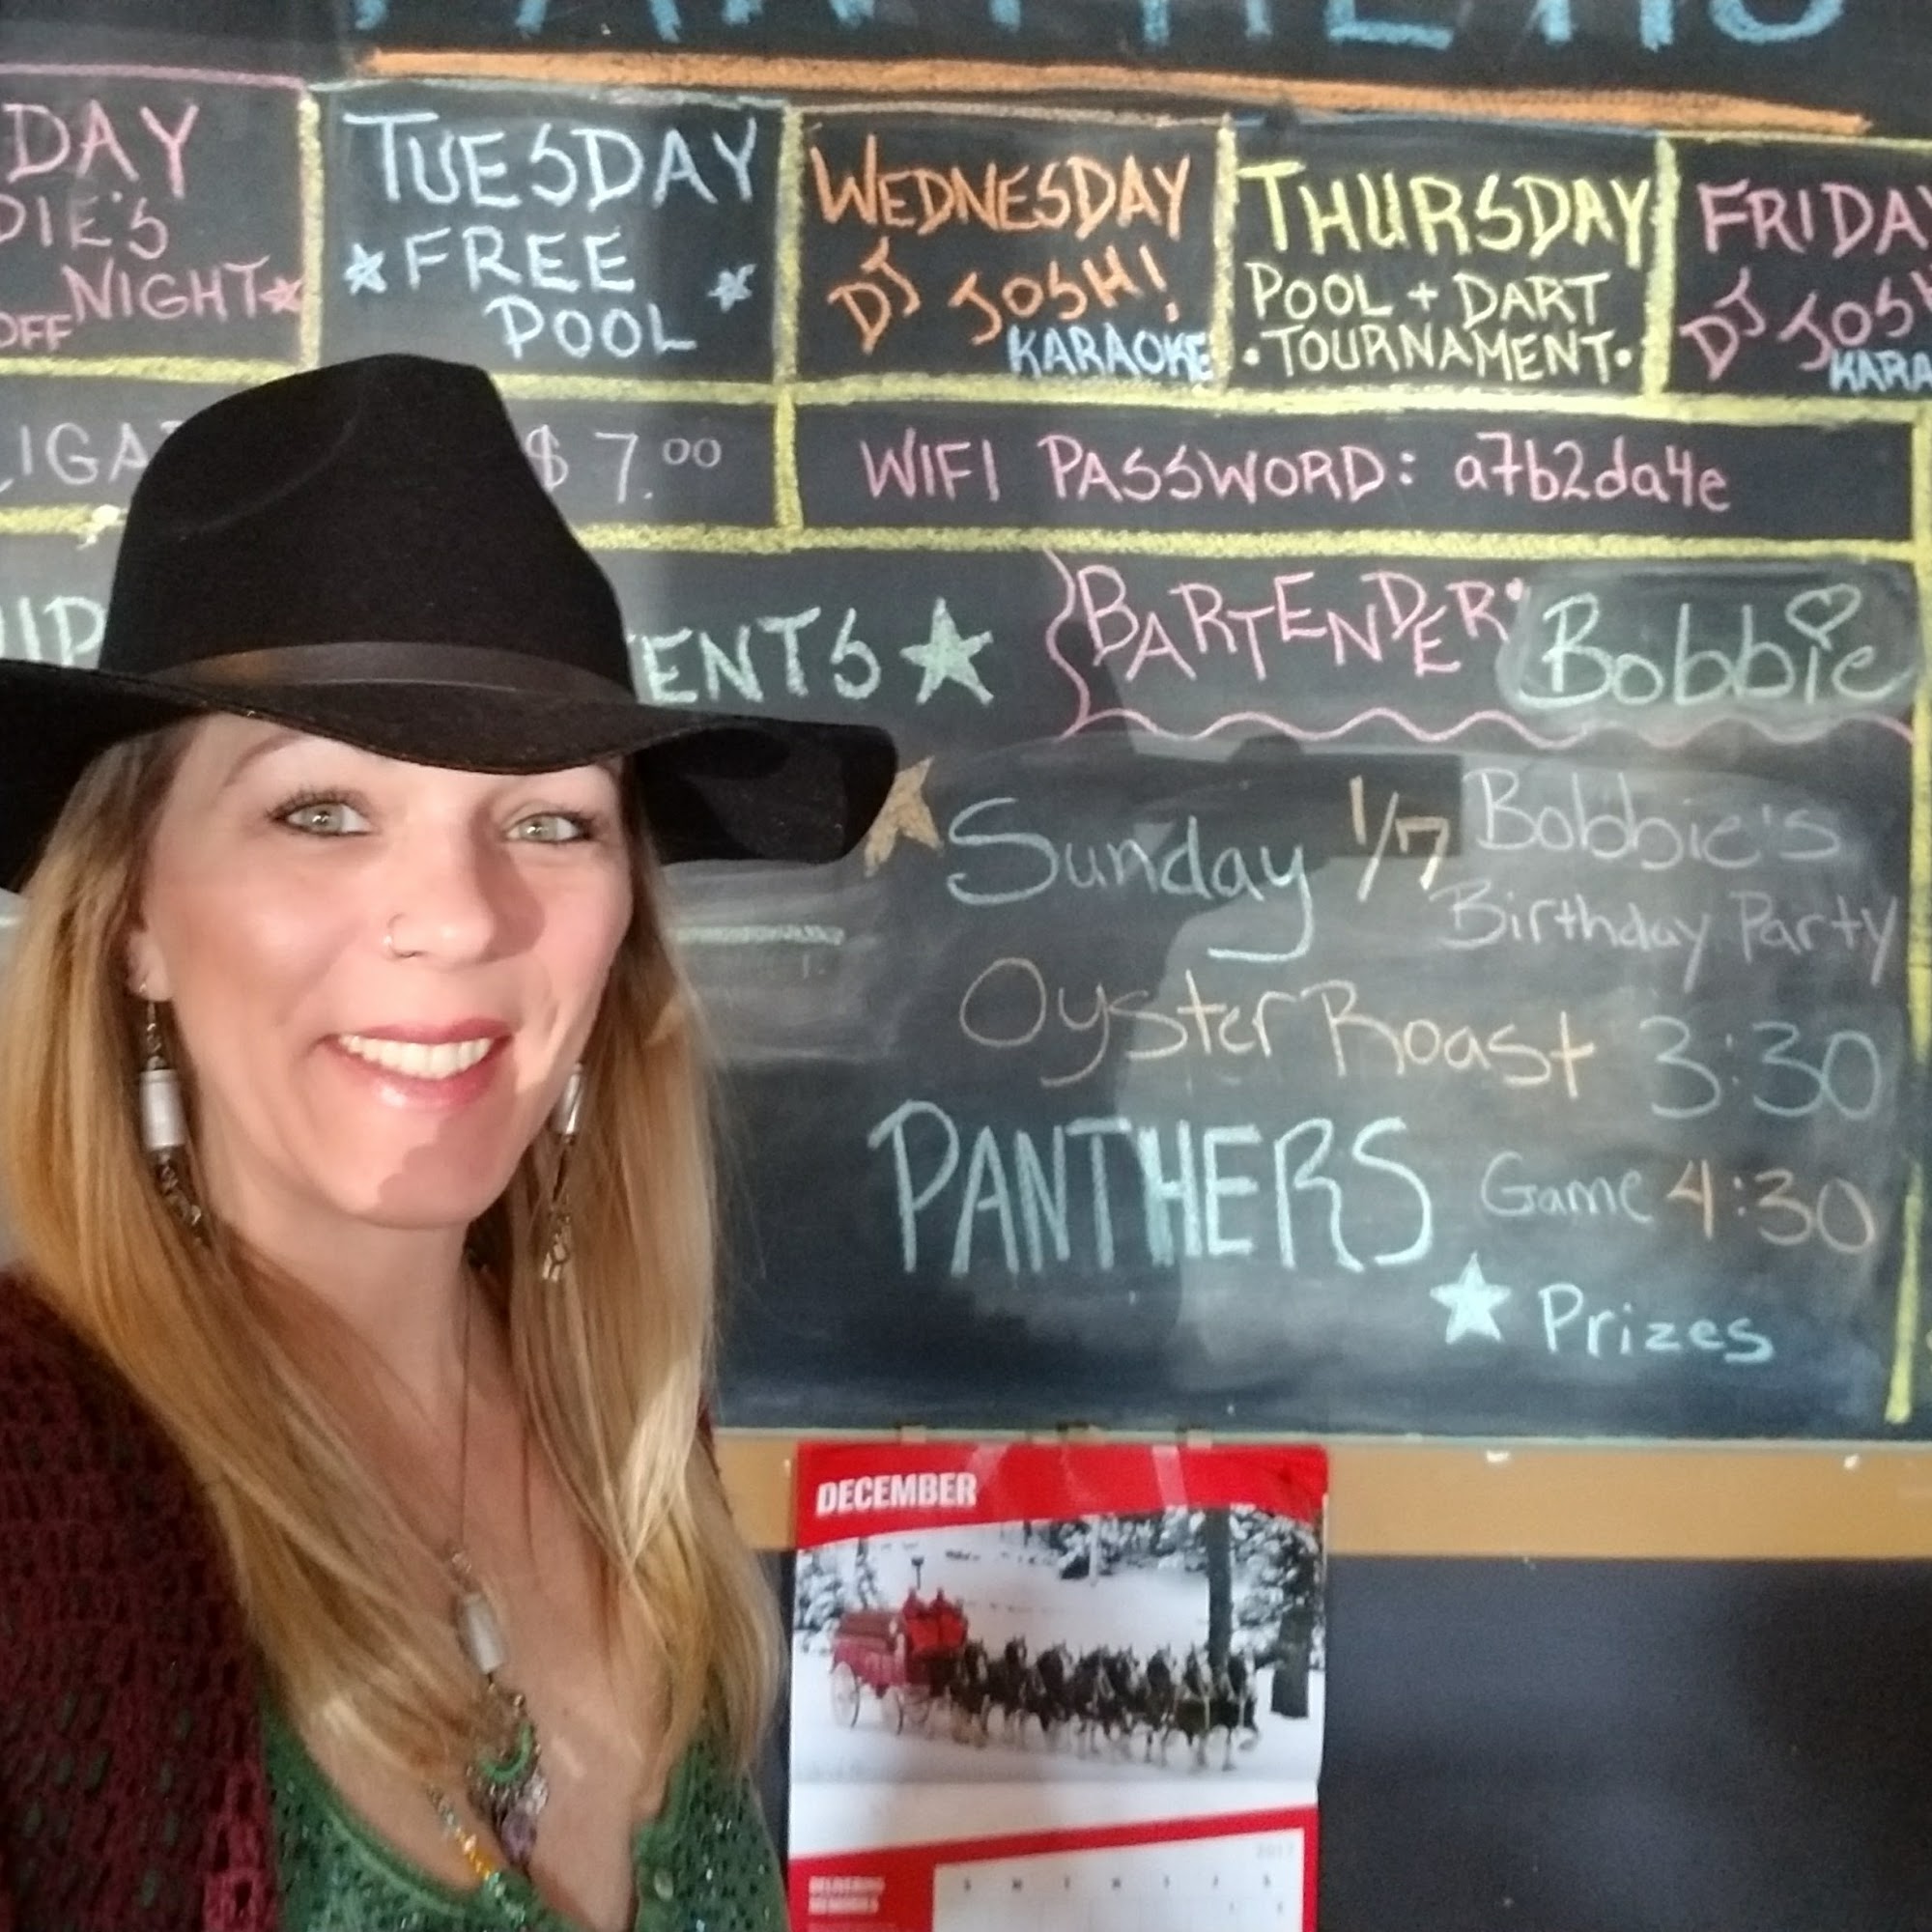 DAY
DIE'S
NIGHT
OFF
TUESDAY
FREE
POOL
WEDNESDAY
DJ JOSH!
KARAOKE
THURSDAY
POOL + DART
•TOURNAMENT•
FRIDAY
DJ JOSH
KARA
LIGA
$7.00
WIFI PASSWORD: a7b2da4e
ENTS
BARTENDER: Bobbie
Sunday 1/7 Bobbie's
Birthday Party
Oyster Roast 3:30
PANTHERS Game 4:30
Prizes
DECEMBER
2017
DELIVERING
MEMORIES
S M T W T F S
1 2